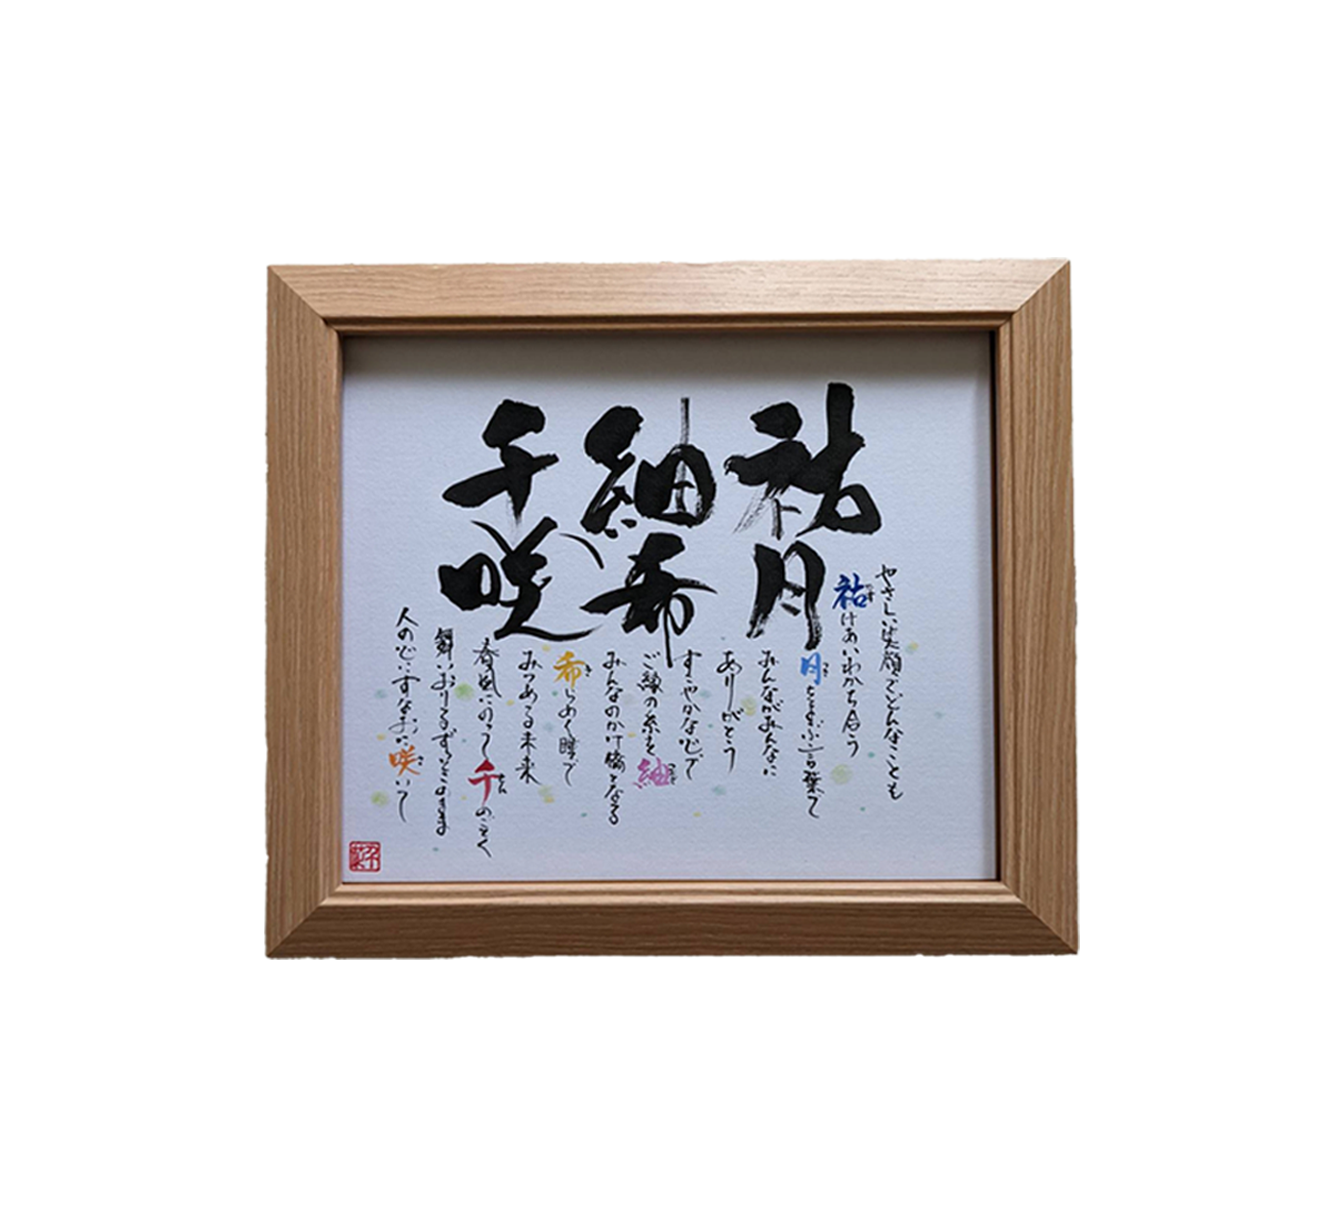 祐月
紬希
千咲
やさしい笑顔でどんなことも
祐けあいわかち合う
月をよぶ言葉で
みんながみんなに
ありがとう
すこやかな心で
ご縁の糸を紬
みんなのかけ橋となる
希らめく瞳で
みつめる未来
春風にのって千のごとく
舞いおりるずっとこのまま
人の心にすなおに咲いて